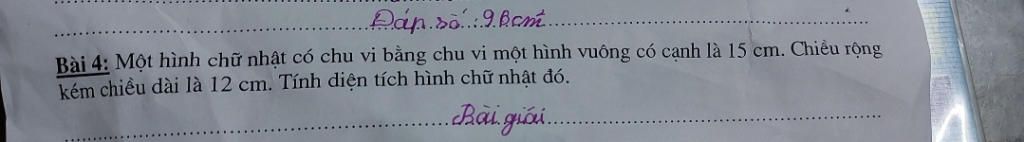 Đáp số: 98cm²
Bài 4: Một hình chữ nhật có chu vi bằng chu vi một hình vuông có cạnh là 15 cm. Chiều rộng
kém chiều dài là 12 cm. Tính diện tích hình chữ nhật đó.
Bài giải